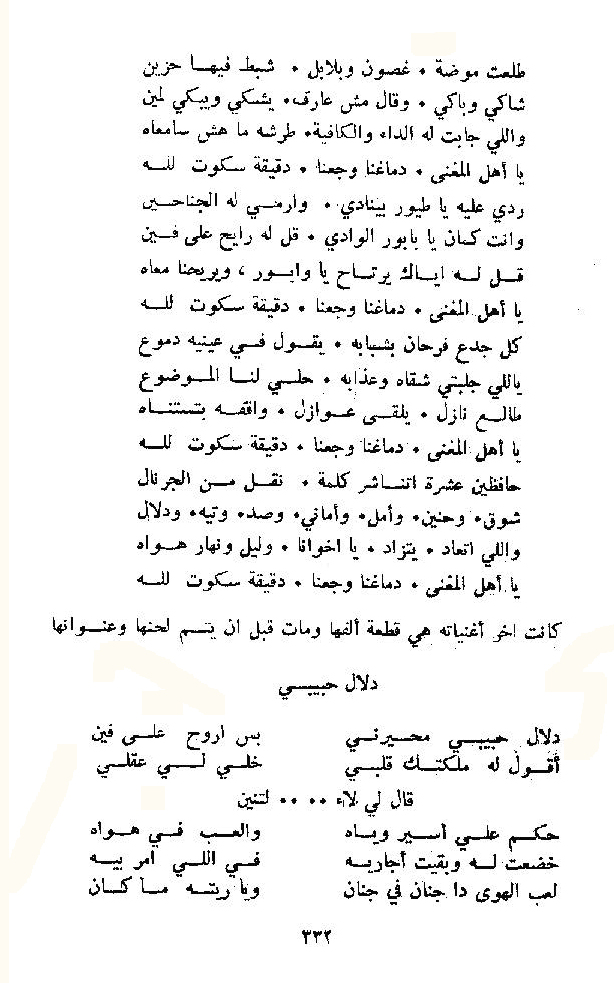 طلعت موضة • غصون وبلابل • شبط فيهــا حزين
شاكي وباكي • وقال مش عارف• يشكي ويبكي لمين
واللي جابت له الداء والكافية• طرشه ما هش سامعاه
يا أهل المغنى • دماغنا وجعنا • دقيقة سكوت للــه
ردي عليه يا طيور بينادي • وارمــي له الجناحــين
وانت كمان يا بابور الوادي • قل له رايح على فــين
قــل لــه ايــاك يرتــاح يا وابــور ، ويريحنا معاه
يا أهل المغنى • دماغنا وجعنا • دقيقة سكوت للــه
كل جدع فرحان بشبابه • يقول فــي عينيه دموع
ياللي جلبتي شقاه وعذابه • حلــي لنــا المــوضوع
طالــع نازل • يلقــى عــوازل • واقفــه بتستنــاه
يا أهل المغنى • دماغنا وجعنا • دقيقة سكوت للــه
حافظين عشرة اتناشر كلمة • نقــل مــن الجرنال
شوق• وحنين• وأمل• وأماني• وصد• وتيه• ودلال
واللي اتعاد • يتزاد • يا اخوانا • وليل ونهار هــواه
يا أهل المغنى • دماغنا وجعنا • دقيقة سكوت للــه
كانت اخر أغنياته هي قطعة ألفها ومات قبل ان يتــم لحنها وعنــوانها
دلال حبيبــي
دلال حبيبــي محيرنــي بس اروح علــى فين
أقــول له ملكتــك قلبــي خلــي لــي عقلــي
قال لي لاء •• •• لتنين
حكــم علــي أسير ويــاه والعــب فــي هــواه
خضعت لــه وبقيت أجاريــه فــي اللــي امر بيــه
لعب الهوى دا جنان في جنان ويا ريتــه مــا كــان
٣٣٢